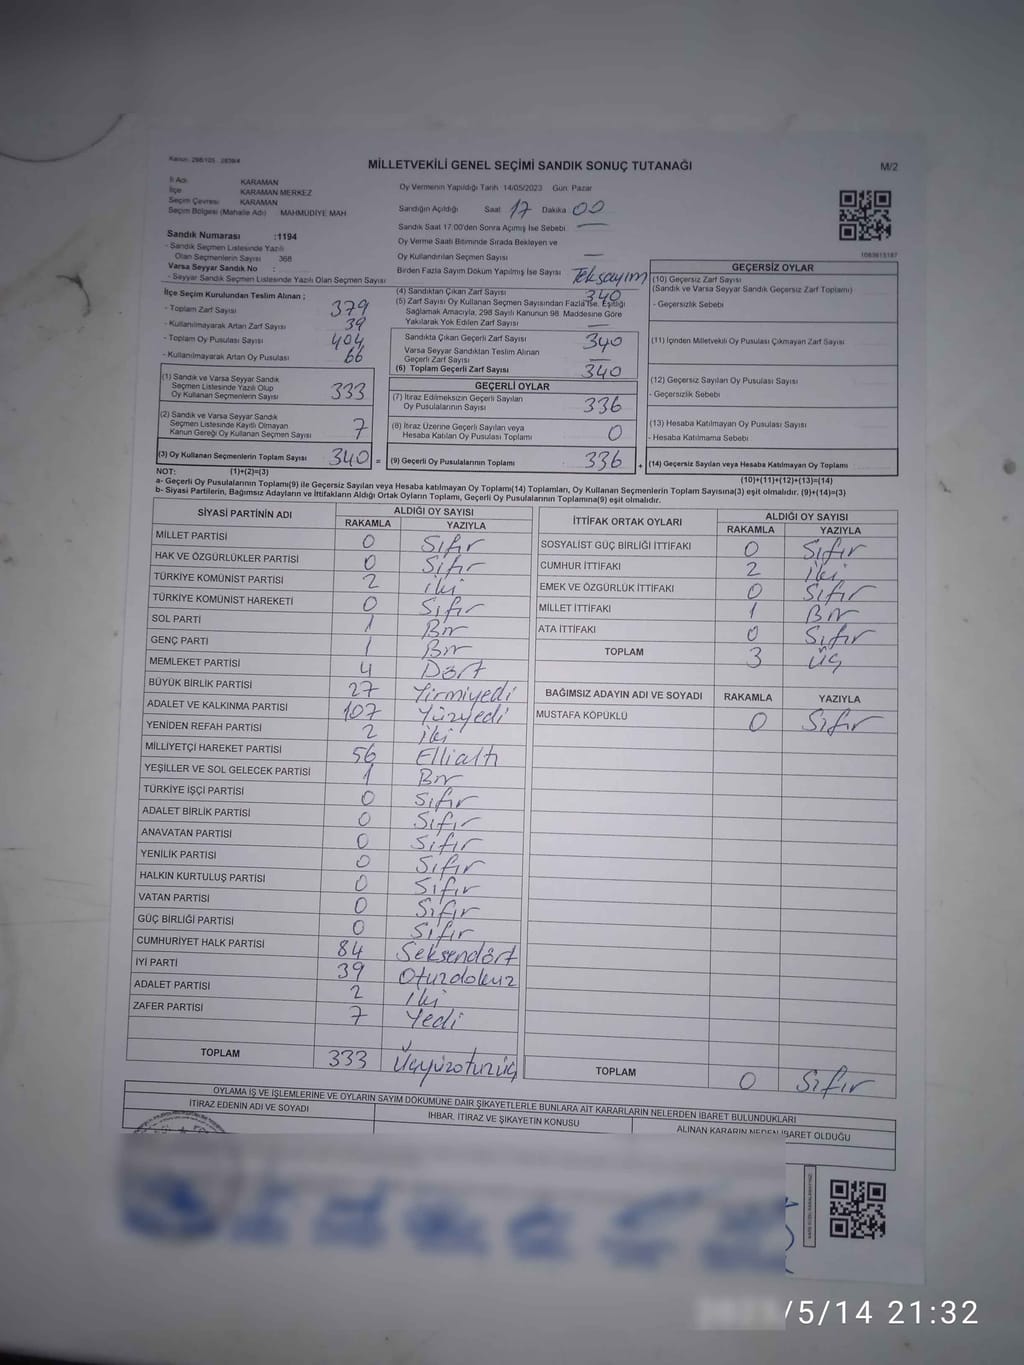 Kanun: 298/105 2839/4
MİLLETVEKİLİ GENEL SEÇİMİ SANDIK SONUÇ TUTANAĞI
M/2
İl Adı KARAMAN
İlçe KARAMAN MERKEZ
Seçim Çevresi KARAMAN
Seçim Bölgesi (Mahalle Adı) MAHMUDİYE MAH
Oy Vermenin Yapıldığı Tarih 14/05/2023 Gün: Pazar
Sandığın Açıldığı Saat 17 Dakika 00
Sandık Saat 17.00'den Sonra Açılmış İse Sebebi —
Oy Verme Saati Bitiminde Sırada Bekleyen ve
Oy Kullandırılan Seçmen Sayısı —
Birden Fazla Sayım Döküm Yapılmış İse Sayısı Teksayım
1083615187
Sandık Numarası :1194
- Sandık Seçmen Listesinde Yazılı
Olan Seçmenlerin Sayısı 368
Varsa Seyyar Sandık No :
- Seyyar Sandık Seçmen Listesinde Yazılı Olan Seçmen Sayısı
İlçe Seçim Kurulundan Teslim Alınan ;
- Toplam Zarf Sayısı 379
- Kullanılmayarak Artan Zarf Sayısı 39
- Toplam Oy Pusulası Sayısı 404
- Kullanılmayarak Artan Oy Pusulası 66
(1) Sandık ve Varsa Seyyar Sandık
Seçmen Listesinde Yazılı Olup
Oy Kullanan Seçmenlerin Sayısı 333
(2) Sandık ve Varsa Seyyar Sandık
Seçmen Listesinde Kayıtlı Olmayan
Kanun Gereği Oy Kullanan Seçmen Sayısı 7
(3) Oy Kullanan Seçmenlerin Toplam Sayısı 340 =
(4) Sandıktan Çıkan Zarf Sayısı 340
(5) Zarf Sayısı Oy Kullanan Seçmen Sayısından Fazla İse, Eşitliği
Sağlamak Amacıyla, 298 Sayılı Kanunun 98. Maddesine Göre
Yakılarak Yok Edilen Zarf Sayısı —
Sandıkta Çıkan Geçerli Zarf Sayısı 340
Varsa Seyyar Sandıktan Teslim Alınan
Geçerli Zarf Sayısı —
(6) Toplam Geçerli Zarf Sayısı 340
GEÇERLİ OYLAR
(7) İtiraz Edilmeksizin Geçerli Sayılan
Oy Pusulalarının Sayısı 336
(8) İtiraz Üzerine Geçerli Sayılan veya
Hesaba Katılan Oy Pusulası Toplamı 0
(9) Geçerli Oy Pusulalarının Toplamı 336 +
GEÇERSİZ OYLAR
(10) Geçersiz Zarf Sayısı
(Sandık ve Varsa Seyyar Sandık Geçersiz Zarf Toplamı)
- Geçersizlik Sebebi
(11) İçinden Milletvekili Oy Pusulası Çıkmayan Zarf Sayısı
(12) Geçersiz Sayılan Oy Pusulası Sayısı
- Geçersizlik Sebebi
(13) Hesaba Katılmayan Oy Pusulası Sayısı
- Hesaba Katılmama Sebebi
(14) Geçersiz Sayılan veya Hesaba Katılmayan Oy Toplamı
NOT: (1)+(2)=(3) (10)+(11)+(12)+(13)=(14)
a- Geçerli Oy Pusulalarının Toplamı(9) ile Geçersiz Sayılan veya Hesaba Katılmayan Oy Toplamı(14) Toplamları, Oy Kullanan Seçmenlerin Toplam Sayısına(3) eşit olmalıdır. (9)+(14)=(3)
b- Siyasi Partilerin, Bağımsız Adayların ve İttifakların Aldığı Ortak Oyların Toplamı, Geçerli Oy Pusulalarının Toplamına(9) eşit olmalıdır.
SİYASİ PARTİNİN ADI ALDIĞI OY SAYISI
RAKAMLA YAZIYLA
MİLLET PARTİSİ 0 Sıfır
HAK VE ÖZGÜRLÜKLER PARTİSİ 0 Sıfır
TÜRKİYE KOMÜNİST PARTİSİ 2 iki
TÜRKİYE KOMÜNİST HAREKETİ 0 Sıfır
SOL PARTİ 1 Bir
GENÇ PARTİ 1 Bir
MEMLEKET PARTİSİ 4 Dört
BÜYÜK BİRLİK PARTİSİ 27 Yirmiyedi
ADALET VE KALKINMA PARTİSİ 107 Yüzyedi
YENİDEN REFAH PARTİSİ 2 iki
MİLLİYETÇİ HAREKET PARTİSİ 56 Ellialtı
YEŞİLLER VE SOL GELECEK PARTİSİ 1 Bir
TÜRKİYE İŞÇİ PARTİSİ 0 Sıfır
ADALET BİRLİK PARTİSİ 0 Sıfır
ANAVATAN PARTİSİ 0 Sıfır
YENİLİK PARTİSİ 0 Sıfır
HALKIN KURTULUŞ PARTİSİ 0 Sıfır
VATAN PARTİSİ 0 Sıfır
GÜÇ BİRLİĞİ PARTİSİ 0 Sıfır
CUMHURİYET HALK PARTİSİ 84 Seksendört
İYİ PARTİ 39 Otuzdokuz
ADALET PARTİSİ 2 iki
ZAFER PARTİSİ 7 Yedi
TOPLAM 333 Üçyüzotuzüç
İTTİFAK ORTAK OYLARI ALDIĞI OY SAYISI
RAKAMLA YAZIYLA
SOSYALİST GÜÇ BİRLİĞİ İTTİFAKI 0 Sıfır
CUMHUR İTTİFAKI 2 iki
EMEK VE ÖZGÜRLÜK İTTİFAKI 0 Sıfır
MİLLET İTTİFAKI 1 Bir
ATA İTTİFAKI 0 Sıfır
TOPLAM 3 üç
BAĞIMSIZ ADAYIN ADI VE SOYADI RAKAMLA YAZIYLA
MUSTAFA KÖPÜKLÜ 0 Sıfır
TOPLAM 0 Sıfır
OYLAMA İŞ VE İŞLEMLERİNE VE OYLARIN SAYIM DÖKÜMÜNE DAİR ŞİKAYETLERLE BUNLARA AİT KARARLARIN NELERDEN İBARET BULUNDUKLARI
İTİRAZ EDENİN ADI VE SOYADI İHBAR, İTİRAZ VE ŞİKAYETİN KONUSU ALINAN KARARIN NEDEN İBARET OLDUĞU
/5/14 21:32